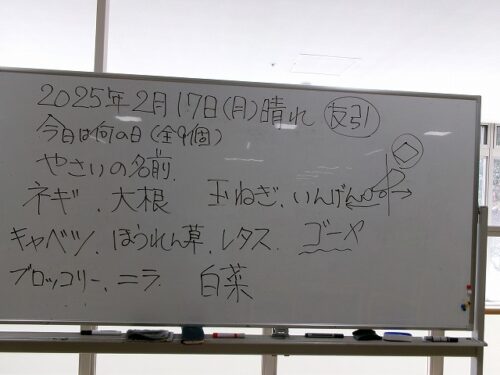 2025年2月17日(月)晴れ 友引
今日は何の日(全9個)
やさいの名前
ネギ、大根 玉ねぎ、いんげん
キャベツ、ほうれん草、レタス ゴーヤ
ブロッコリー、ニラ 白菜